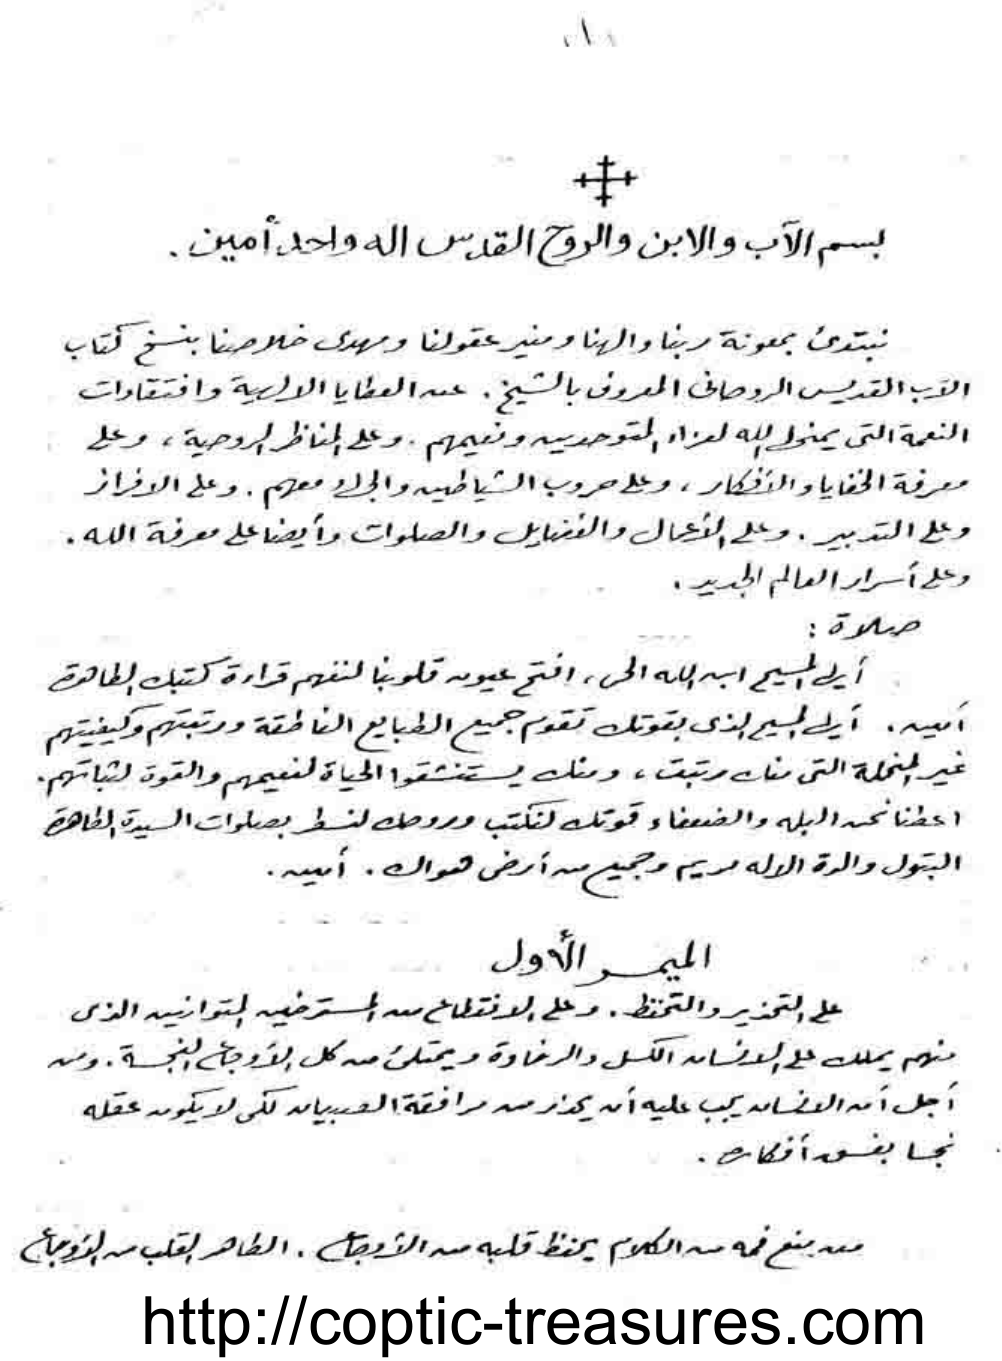 ١
بسم الآب والابن والروح القدس اله واحد أمين .
نبتدئ بمعونة ربنا والهنا ومنير عقولنا ومهدى خلاصنا بنسخ كتاب
الآب القديس الروحانى المعروف بالشيخ . عن العطايا الالهية وافتقادات
النعمة التى يمنحها الله لعزاء المتوحدين ونعيمهم . وعلى المناظر الروحية ، وعلى
معرفة الخفايا والأفكار ، وعلى حروب الشياطين والجهاد معهم . وعلى الافراز
وعلى التدبير . وعلى الأعمال والفضايل والصلوات وأيضا على معرفة الله .
وعلى أسرار العالم الجديد .
صلاة :
أيها المسيح ابن الله الحى ، افتح عيون قلوبنا لنفهم قراءة كتبك الطاهرة
أمين . أيها المسيح الذى بقوتك تقوم جميع الطبايع الناطقة ورتبتهم وكيفيتهم
غير المنحلة التى منك رتبت ، ومنك يستنشقوا الحياة لنعيمهم والقوة لثباتهم .
اعطنا نحن البله والضعفاء قوتك لنكتب وروحك لنسطر بصلوات السيدة الطاهرة
البتول والدة الاله مريم وجميع من أرضى هواك . أمين .
الميمر الأول
على التحذير والتحفظ . وعلى الانقطاع من المسترخين المتوانين الذى
منهم يملك على الانسان الكسل والرخاوة ويمتلئ من كل الأوجاع النجسة . ومن
أجل أن الانسان يجب عليه أن يحذر من مرافقة الصبيان لكى لا يكون عقله
نجسا بفسق أفكاره .
من يمنع فمه من الكلام يحفظ قلبه من الأوجاع . الطاهر القلب من الأوجاع
http://coptic-treasures.com